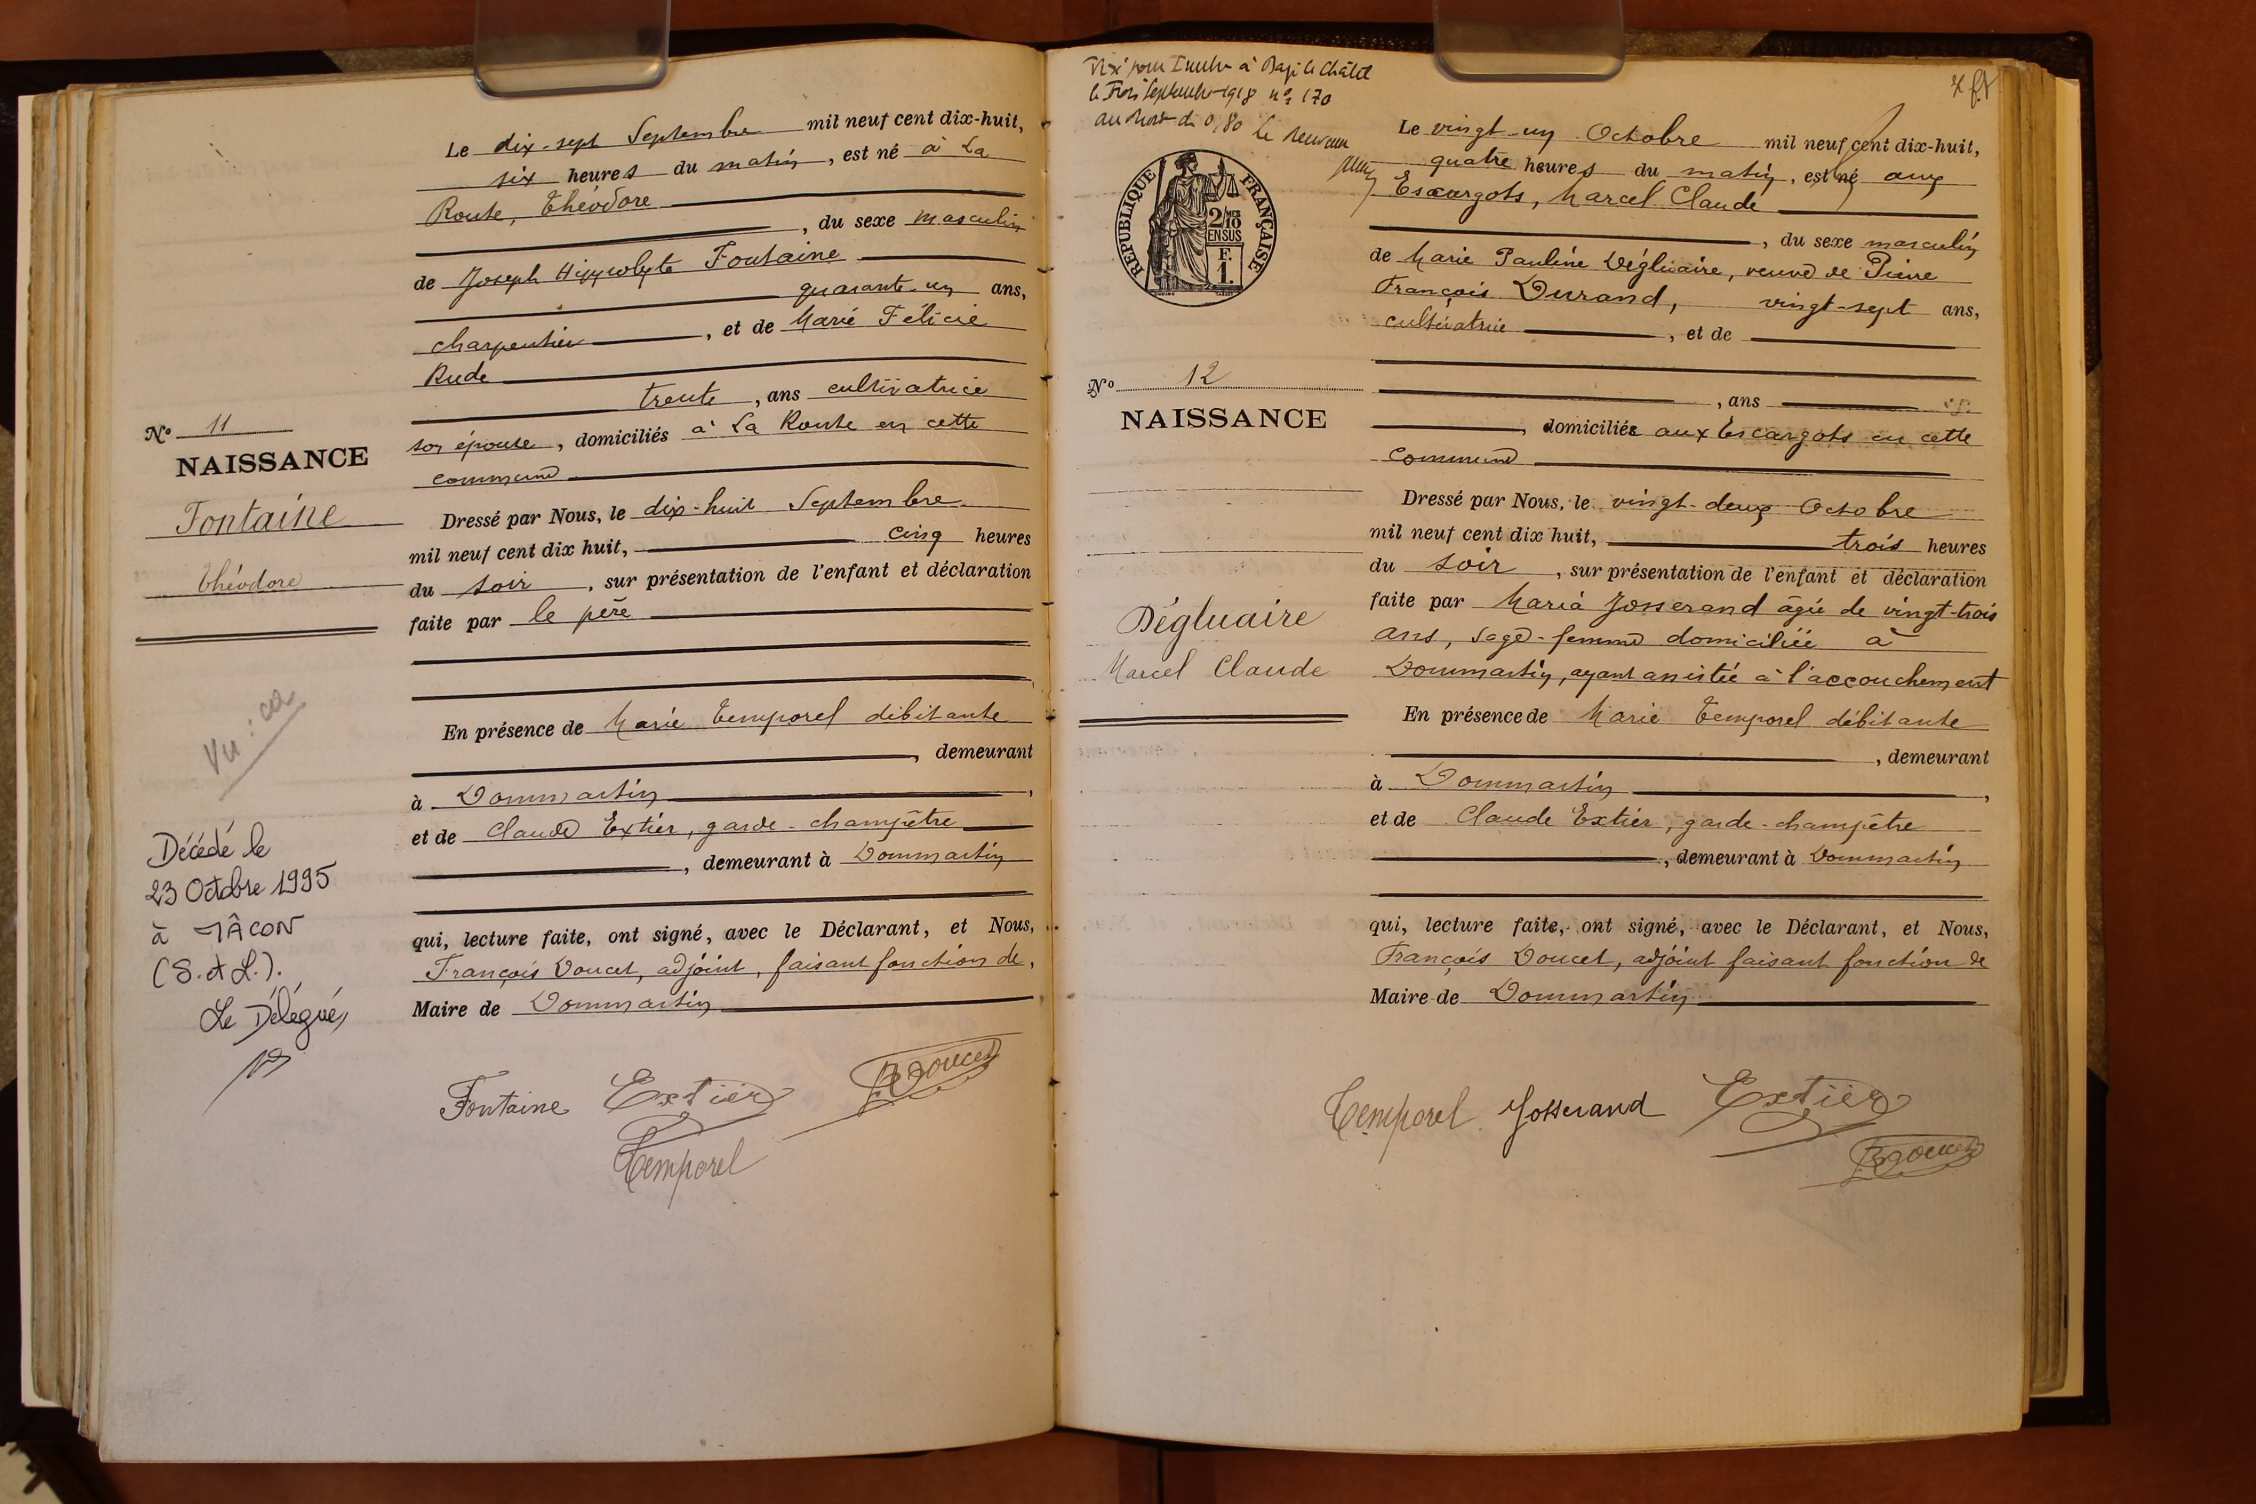 Le dix-sept Septembre mil neuf cent dix-huit,
six heures du matin, est né à La
Route, Théodore
, du sexe masculin
de Joseph Hippolyte Fontaine
quarante-un ans,
charpentier, et de Marie Félicie
Rude
trente, ans cultivatrice
son épouse, domiciliés à La Route en cette
commune
Dressé par Nous, le dix-huit Septembre
mil neuf cent dix huit, cinq heures
du soir, sur présentation de l'enfant et déclaration
faite par le père
En présence de Marie Temporel débitante
, demeurant
à Dommartin,
et de Claude Extier, garde-champêtre
, demeurant à Dommartin
qui, lecture faite, ont signé, avec le Déclarant, et Nous,
François Doucet, adjoint, faisant fonction de,
Maire de Dommartin
Fontaine Extier Doucet
Temporel
No 11
NAISSANCE
Fontaine
Théodore
Vu : ca
Décédé le
23 Octobre 1995
à MÂCON
(S. et L.).
Le Délégué,
Visé pour Timbre à Bagé le Châtel
le Trois Septembre 1918 n° 170
au droit de 0,80 Le Receveur
RÉPUBLIQUE FRANÇAISE
2/10
EN SUS
F.
1.
No 12
NAISSANCE
Dégluaire
Marcel Claude
Le vingt-un Octobre mil neuf cent dix-huit,
quatre heures du matin, est né aux
Escargots, Marcel Claude
, du sexe masculin
de Marie Pauline Dégluaire, veuve de Pierre
François Durand, vingt-sept ans,
cultivatrice, et de
, ans
, domiciliée aux Escargots en cette
commune
Dressé par Nous, le vingt-deux Octobre
mil neuf cent dix huit, trois heures
du soir, sur présentation de l'enfant et déclaration
faite par Maria Josserand âgée de vingt-trois
ans, sage-femme domiciliée à
Dommartin, ayant assistée à l'accouchement
En présence de Marie Temporel débitante
, demeurant
à Dommartin,
et de Claude Extier, garde-champêtre
, demeurant à Dommartin
qui, lecture faite, ont signé, avec le Déclarant, et Nous,
François Doucet, adjoint faisant fonction de
Maire de Dommartin
Temporel Josserand Extier
Doucet